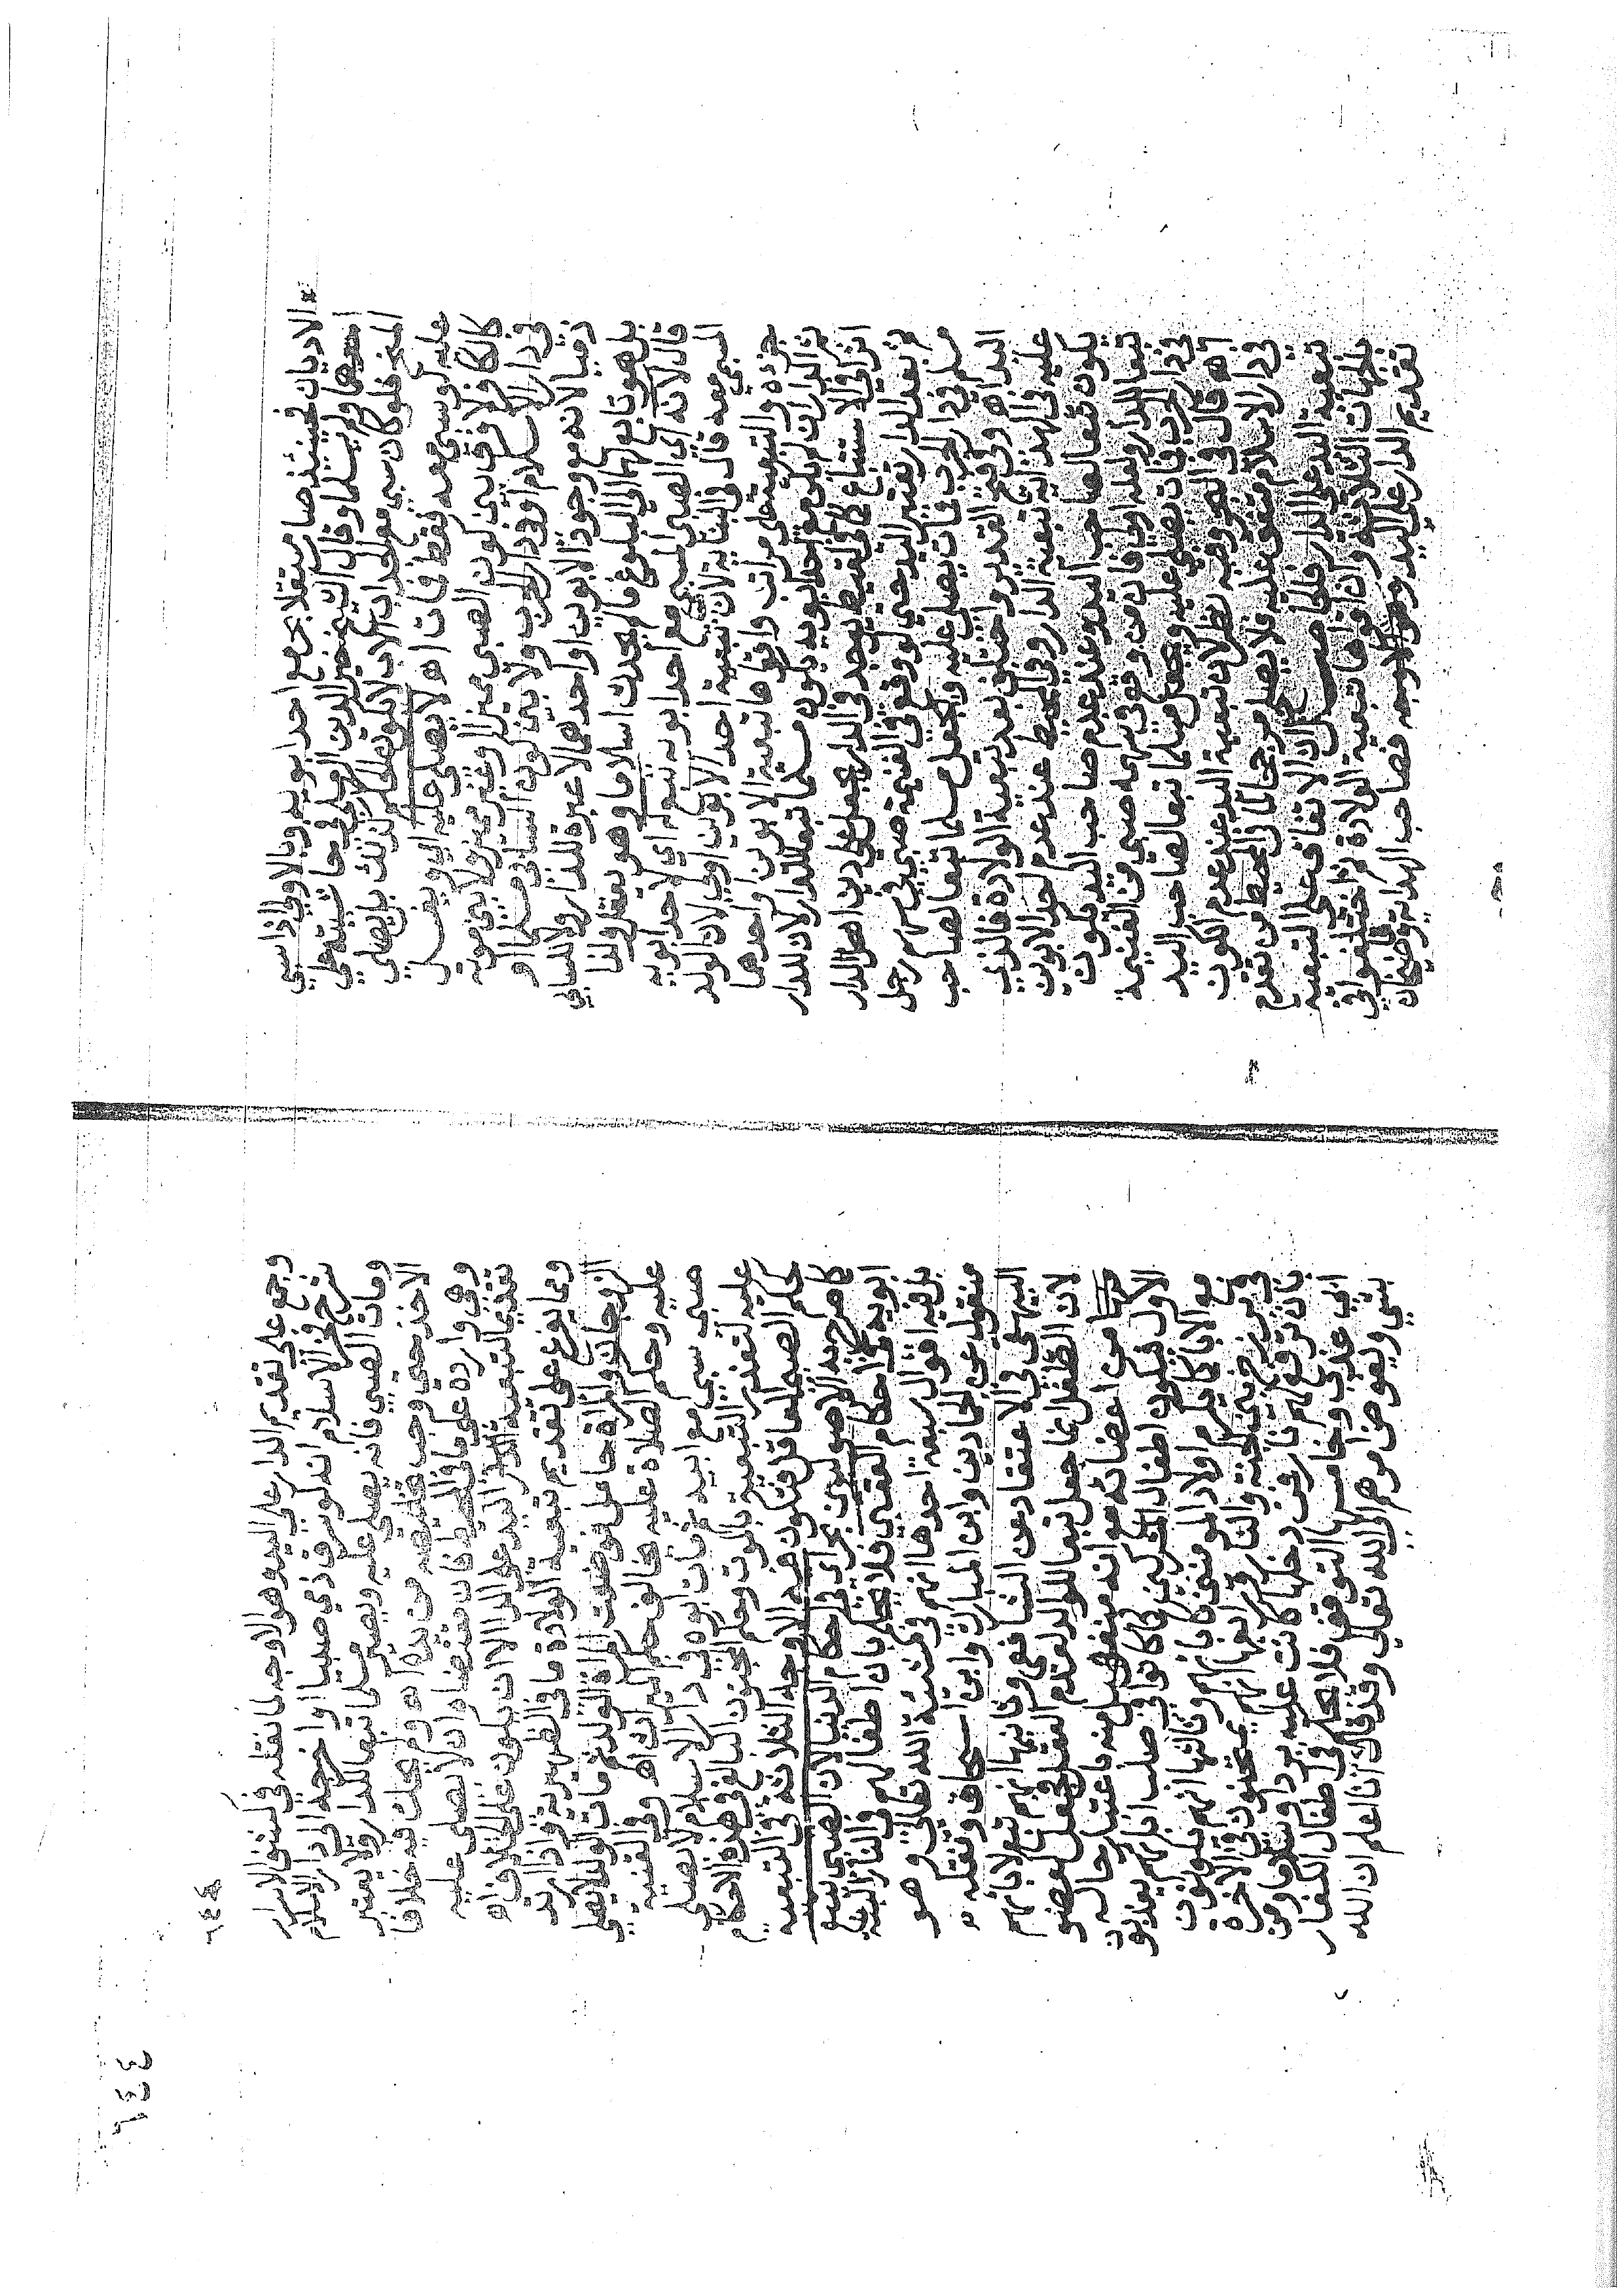 الاديان فحينئذ صار مستقلا بحر مع احد ابويه وبالاولى اذا سبي
معهما ولم يسلما وقال الشيخ خير الدين الرملي في حاشيته على
المنح فلو كان سبي مع الاب لا يكون حكم كذلك بل يصلي
عليه لو سبي معه فقط فات اه لا يصلى عليه
كالكافر لا فرق بين لون الصبي مميز او غير مميز ولا بين موته
في دار الاسلام او في دار الحرب ولا بين كون السابي مسلما او
ذميا لانه مع وجود الابوين او احدهما لا عبرة للدار ولا للسابي
بل هو تابع لهما الى البلوغ ما لم يحدث اسلاما وهو يعقل ولنا
قال لانه اي الصبي المسبي مع احد ابويه تبع له اي لاحد ابويه
المسبي معه قال في البناية لان تبعية احد الابوين اولى لان الولد
جزءه والتبعية على مراتب واقواها تبعية الابوين او احدهما
ثم الدار ان لم يكن مع احد ابويه يكون مسلما تبعا للدار لان للدار
اثرا في الاستتباع كما في لقيط يوجد في الدار يجعل على دين اهل الدار
ثم بعد الدار تعتبر اليد حتى لو وقع في الغنيمة صبي في سهم رجل
مسلم في دار الحرب فات يصلى عليه ويجعل مسلما تبعا لصاحب
اليد اه وفي فتح القدير واختلف بعد تبعية الولادة فالذي
عليه في الهداية تبعية الدار وفي المحيط عند عدم احد الابوين
يكون تبعا لصاحب اليد وعند عدم صاحب اليد يكون
تبعا للدار ولعله اولى فان من وقع في سهمه صبي من الغنيمة
في دار الحرب فات يصلى عليه ويجعل مسلما تبعا لصاحب اليد
اه قال في البحر وفيه نظر لان تبعية اليد عند عدم الكون
في دار الاسلام متفق عليه فلا يصلح مرجحا لما في المحيط من تقدم
تبعية اليد على الدار فالحاصل ان الاتفاق على التبعية
بالجهات الثلاثة وان اقواها تبعية الولادة ثم اختلفوا في
تقديم الدار على اليد وهو الاوجه فصاحب الهداية وقاضيخان
وجمع على تقديم الدار على اليد وهو الاوجه لما نقله في كشف الاسرار
شرح فخر الاسلام انه لو سرق ذمي صبيا واخرجه الى دار الاسلام
ومات الصبي فانه يصلى عليه ويصير مسلما تبعا للدار ولا يعتبر
الاخذ حتى وجب تخليصه من يده اه ولم يحك فيه خلافا
وهي واردة على ما في المحيط فان مقتضاه ان لا يصلى عليه
تقديما لتبعية اليد على الدار الا ان يكون على الخلاف اه
ومما يفرع على تقديم تبعية الولادة ما في الظهيرية واذا ارتد
الزوجان والمرأة حامل فوضعت المرأة الولد ثم مات الولد لا يصلى
عليه وحكم الصلاة عليه يخالف حكم الميراث اه وفي القنية
صبي سبي مع ابيه ثم مات ابوه في دار الاسلام لا يصلى
عليه لتقرر التبعية بالموت وحكم المجنون البالغ في هذه الاحكام
كحكم الصبي العاقل فيكون فيه الاوجه الثلاثة في التبعية
كما صرح به الاصوليون بجرى في احكام الدنيا لان الصبي تبع
ابويه في احكام العقبى فلا يحكم بان اطفالهم في النار البتة
بل فيه اقوال سبعة احدها انهم في مشيئة الله تعالى وهو
منقول عن الحمادين وابن المبارك وابن اسحاق ونقله
البيهقي في الاعتقاد عن الشافعي وثانيها انهم تبع لابائهم
لان الطفل انما جعل تبعا للوالد لعدم العقل فجعل كعضو
من اعضائه مع انه منفصل منه باعتبار حاله
الاول فيكون اطفال المشركين كما كانوا في صلب ابائهم يعذبون
مع الاباء كما يكرم اولاد المؤمنين كابائهم وثالثها انهم يكونون
في برزخ بين الجنة والنار ورابعها انهم يمتحنون في الاخرة
بان ترفع لهم نار فمن دخلها كانت عليه بردا وسلاما ومن
ابى عذب وخامسها التوقف فلا يحكم في اطفال الكفار
بشيء ويفوض امرهم الى الله تعالى وقد قال انا اعلم ان الله